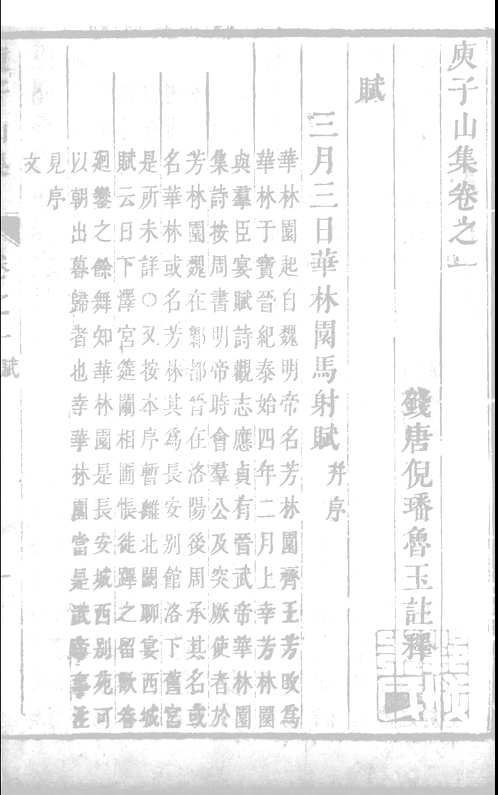 庾子山集卷之一
錢唐倪璠魯玉註釋
賦
三月三日華林園馬射賦并序
華林園起自魏明帝名芳林園齊王芳改爲
華林于寶晉紀泰始四年二月上幸芳林園
與羣臣宴賦詩觀志應貞有晉武帝華林園
集詩按周書明帝時會羣公及突厥使者於
芳林園魏在鄴都晉在洛陽後周承其名或
名華林或名芳林其爲長安别館洛下舊宮
是所未詳○又按本序暫離北闕聊宴西城
賦云日下澤宮筵闌相圃悵徒蹕之留歡眷
迴鑾之餘舞知華林園是長安城西别苑可
以朝出暮歸者也幸華林園當是武帝事
見序
文